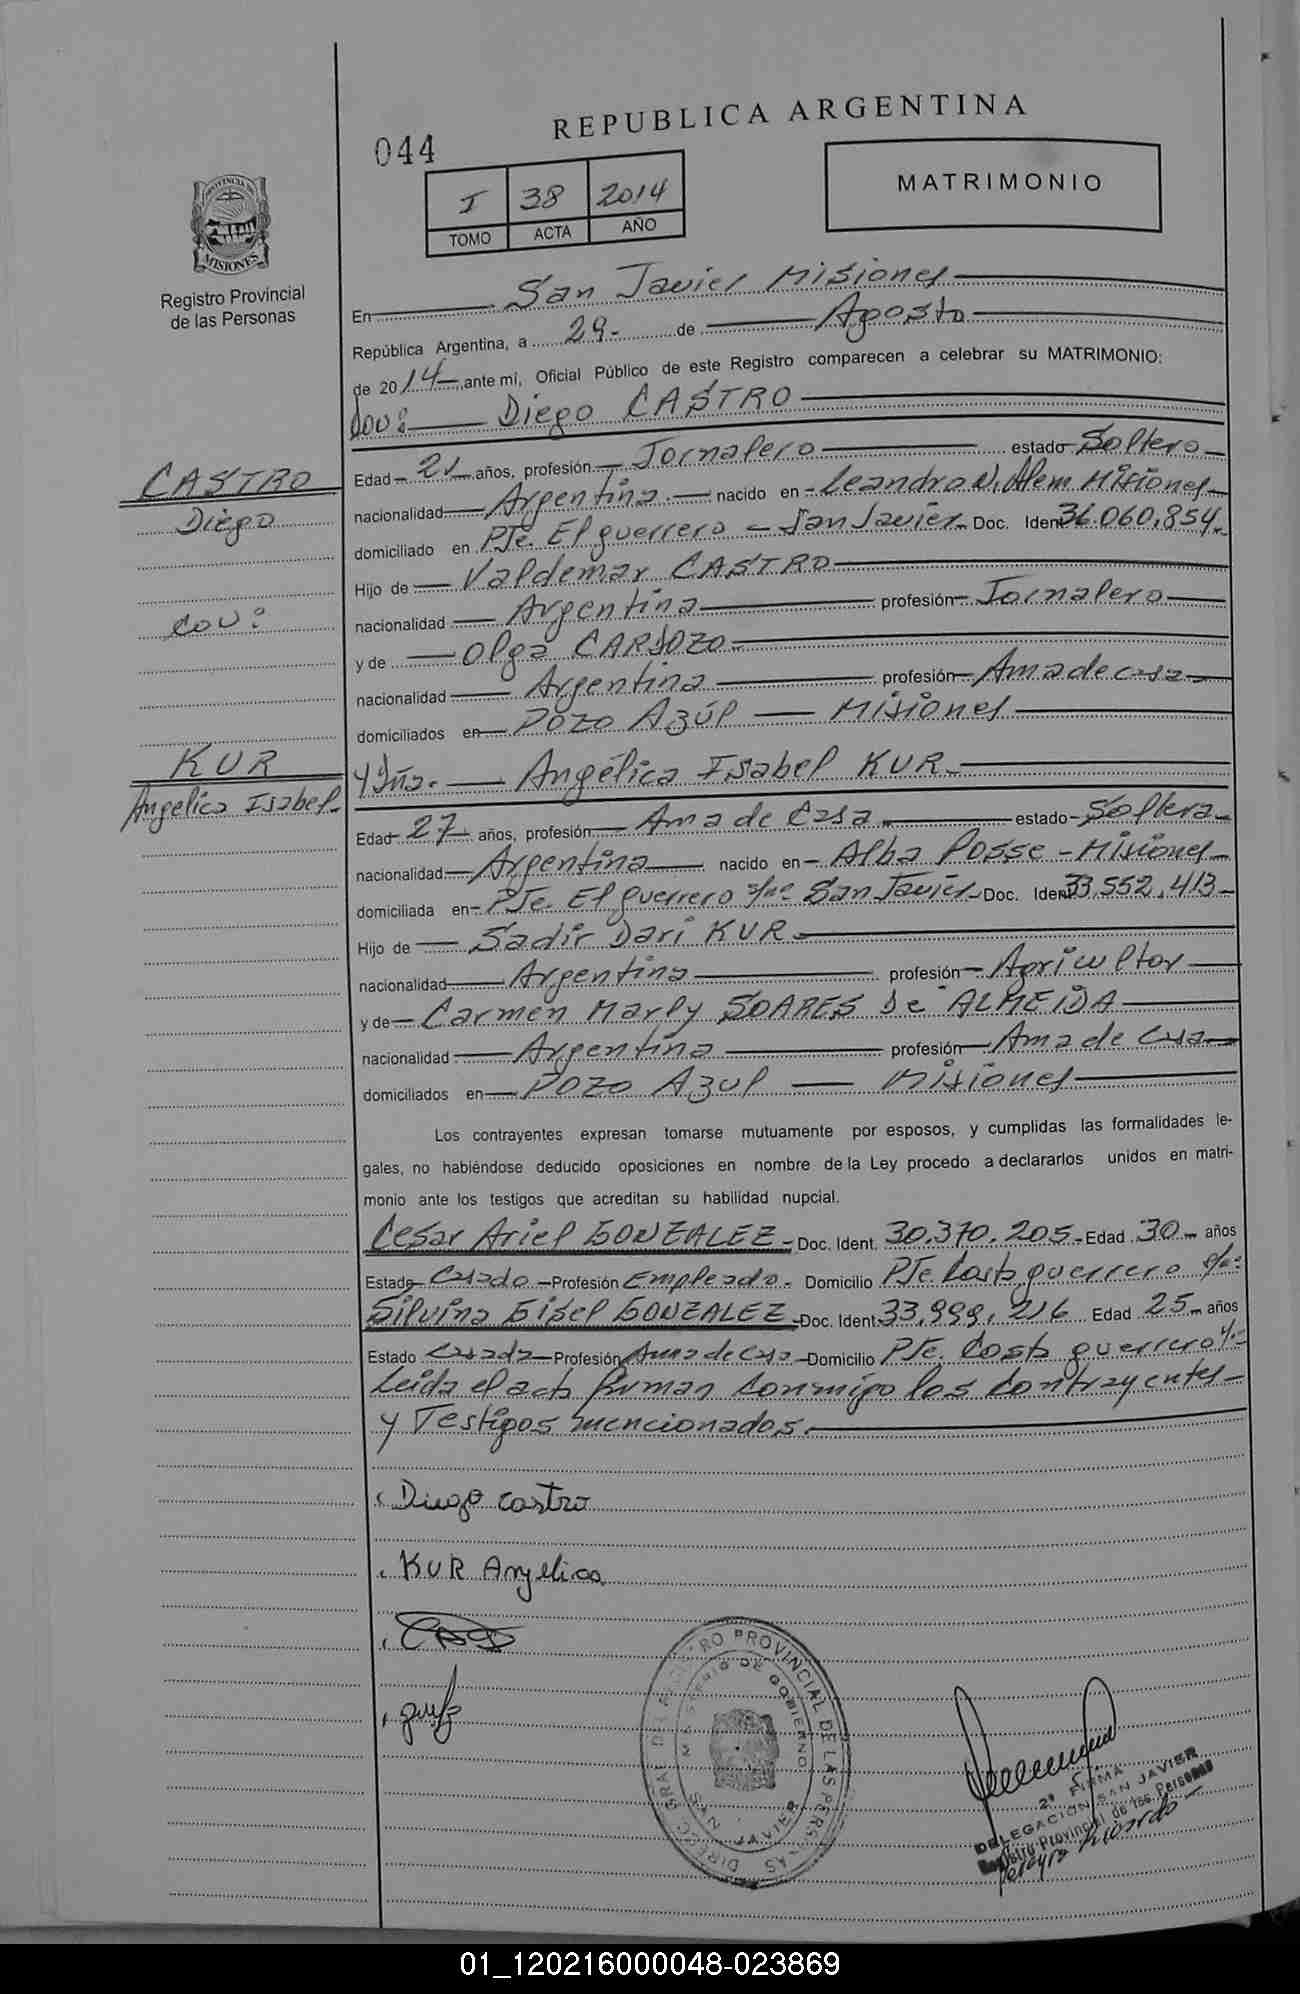 REPUBLICA ARGENTINA
044
MATRIMONIO
I 38 2014
TOMO ACTA AÑO
PROVINCIA DE
MISIONES
Registro Provincial
de las Personas
En San Javier Misiones
República Argentina, a 29- de Agosto
de 2014 ante mí, Oficial Público de este Registro comparecen a celebrar su MATRIMONIO:
Don: Diego CASTRO
Edad 21 años, profesión Jornalero estado Soltero
nacionalidad Argentina.- nacido en Leandro N. Alem. Misiones
domiciliado en Pje. El guerrero - San Javier- Doc. Ident 36.060.854.
Hijo de Valdemar CASTRO
nacionalidad Argentina profesión Jornalero
y de Olga CARDOZO
nacionalidad Argentina profesión Ama de casa
domiciliados en Pozo Azúl - Misiones
CASTRO
Diego
con:
KUR
Angelica Isabel.
y Dña. Angélica Isabel KUR
Edad 27 años, profesión Ama de Casa estado Soltera
nacionalidad Argentina nacido en Alba Posse - Misiones
domiciliada en Pje. El guerrero San Javier- Doc. Ident 33.552.413
Hijo de Sadir Dari KUR
nacionalidad Argentina profesión Agricultor
y de Carmen Marly SOARES De ALMEIDA
nacionalidad Argentina profesión Ama de casa
domiciliados en Pozo Azul - Misiones
Los contrayentes expresan tomarse mutuamente por esposos, y cumplidas las formalidades le-
gales, no habiéndose deducido oposiciones en nombre de la Ley procedo a declararlos unidos en matri-
monio ante los testigos que acreditan su habilidad nupcial.
Cesar Ariel GONZALEZ - Doc. Ident. 30.370.205- Edad 30 años
Estado Casado - Profesión Empleado- Domicilio Pje. Costa guerrero
Silvina Gisel GONZALEZ - Doc. Ident. 33.999.216 Edad 25 años
Estado Casada - Profesión Ama de casa - Domicilio Pje. Costa guerrero
Leida el acta firman conmigo los contrayentes
y Testigos mencionados.
Diego castro
KUR Angelica
DIRECC. GRAL. DEL REGISTRO PROVINCIAL DE LAS PERSONAS
MINISTERIO DE GOBIERNO
SAN JAVIER
2º FIRMA
DELEGACION SAN JAVIER
Registro Provincial de las Personas
Pereyra Ricardo
01_120216000048-023869